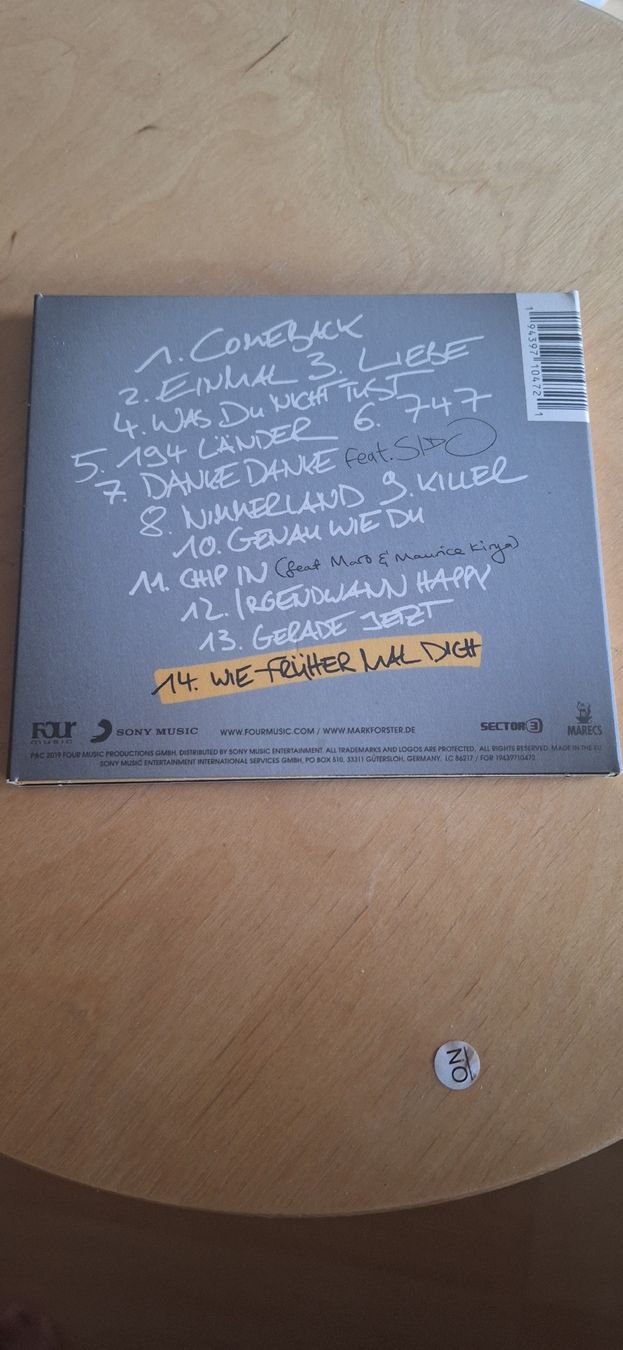 1. COMEBACK
2. EINMAL 3. LIEBE
4. WAS DU NICHT TUST
5. 194 LÄNDER 6. 747
7. DANKE DANKE feat. SIDO
8. NIMMERLAND 9. KILLER
10. GENAU WIE DU
11. CHIP IN (feat Maro & Maurice Kirya)
12. IRGENDWANN HAPPY
13. GERADE JETZT
14. WIE FRÜHER MAL DICH
1 94397 10472 1
FOUR MUSIC
SONY MUSIC
WWW.FOURMUSIC.COM / WWW.MARKFORSTER.DE
SECTOR 3
MARECS
P&C 2019 FOUR MUSIC PRODUCTIONS GMBH. DISTRIBUTED BY SONY MUSIC ENTERTAINMENT. ALL TRADEMARKS AND LOGOS ARE PROTECTED. ALL RIGHTS RESERVED. MADE IN THE EU
SONY MUSIC ENTERTAINMENT INTERNATIONAL SERVICES GMBH, PO BOX 510, 33311 GÜTERSLOH, GERMANY. LC 86217 / FOR 19439710472
NO